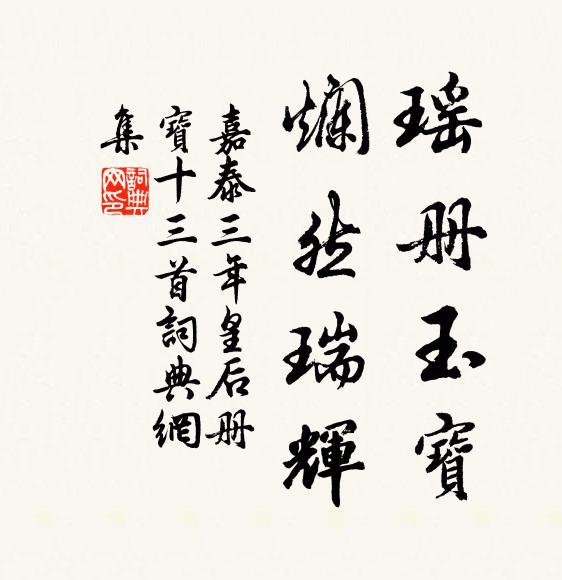 瑶册玉寶
爛然瑞輝
嘉泰三年皇后册
寶十三首詞典網
集
詞典网印